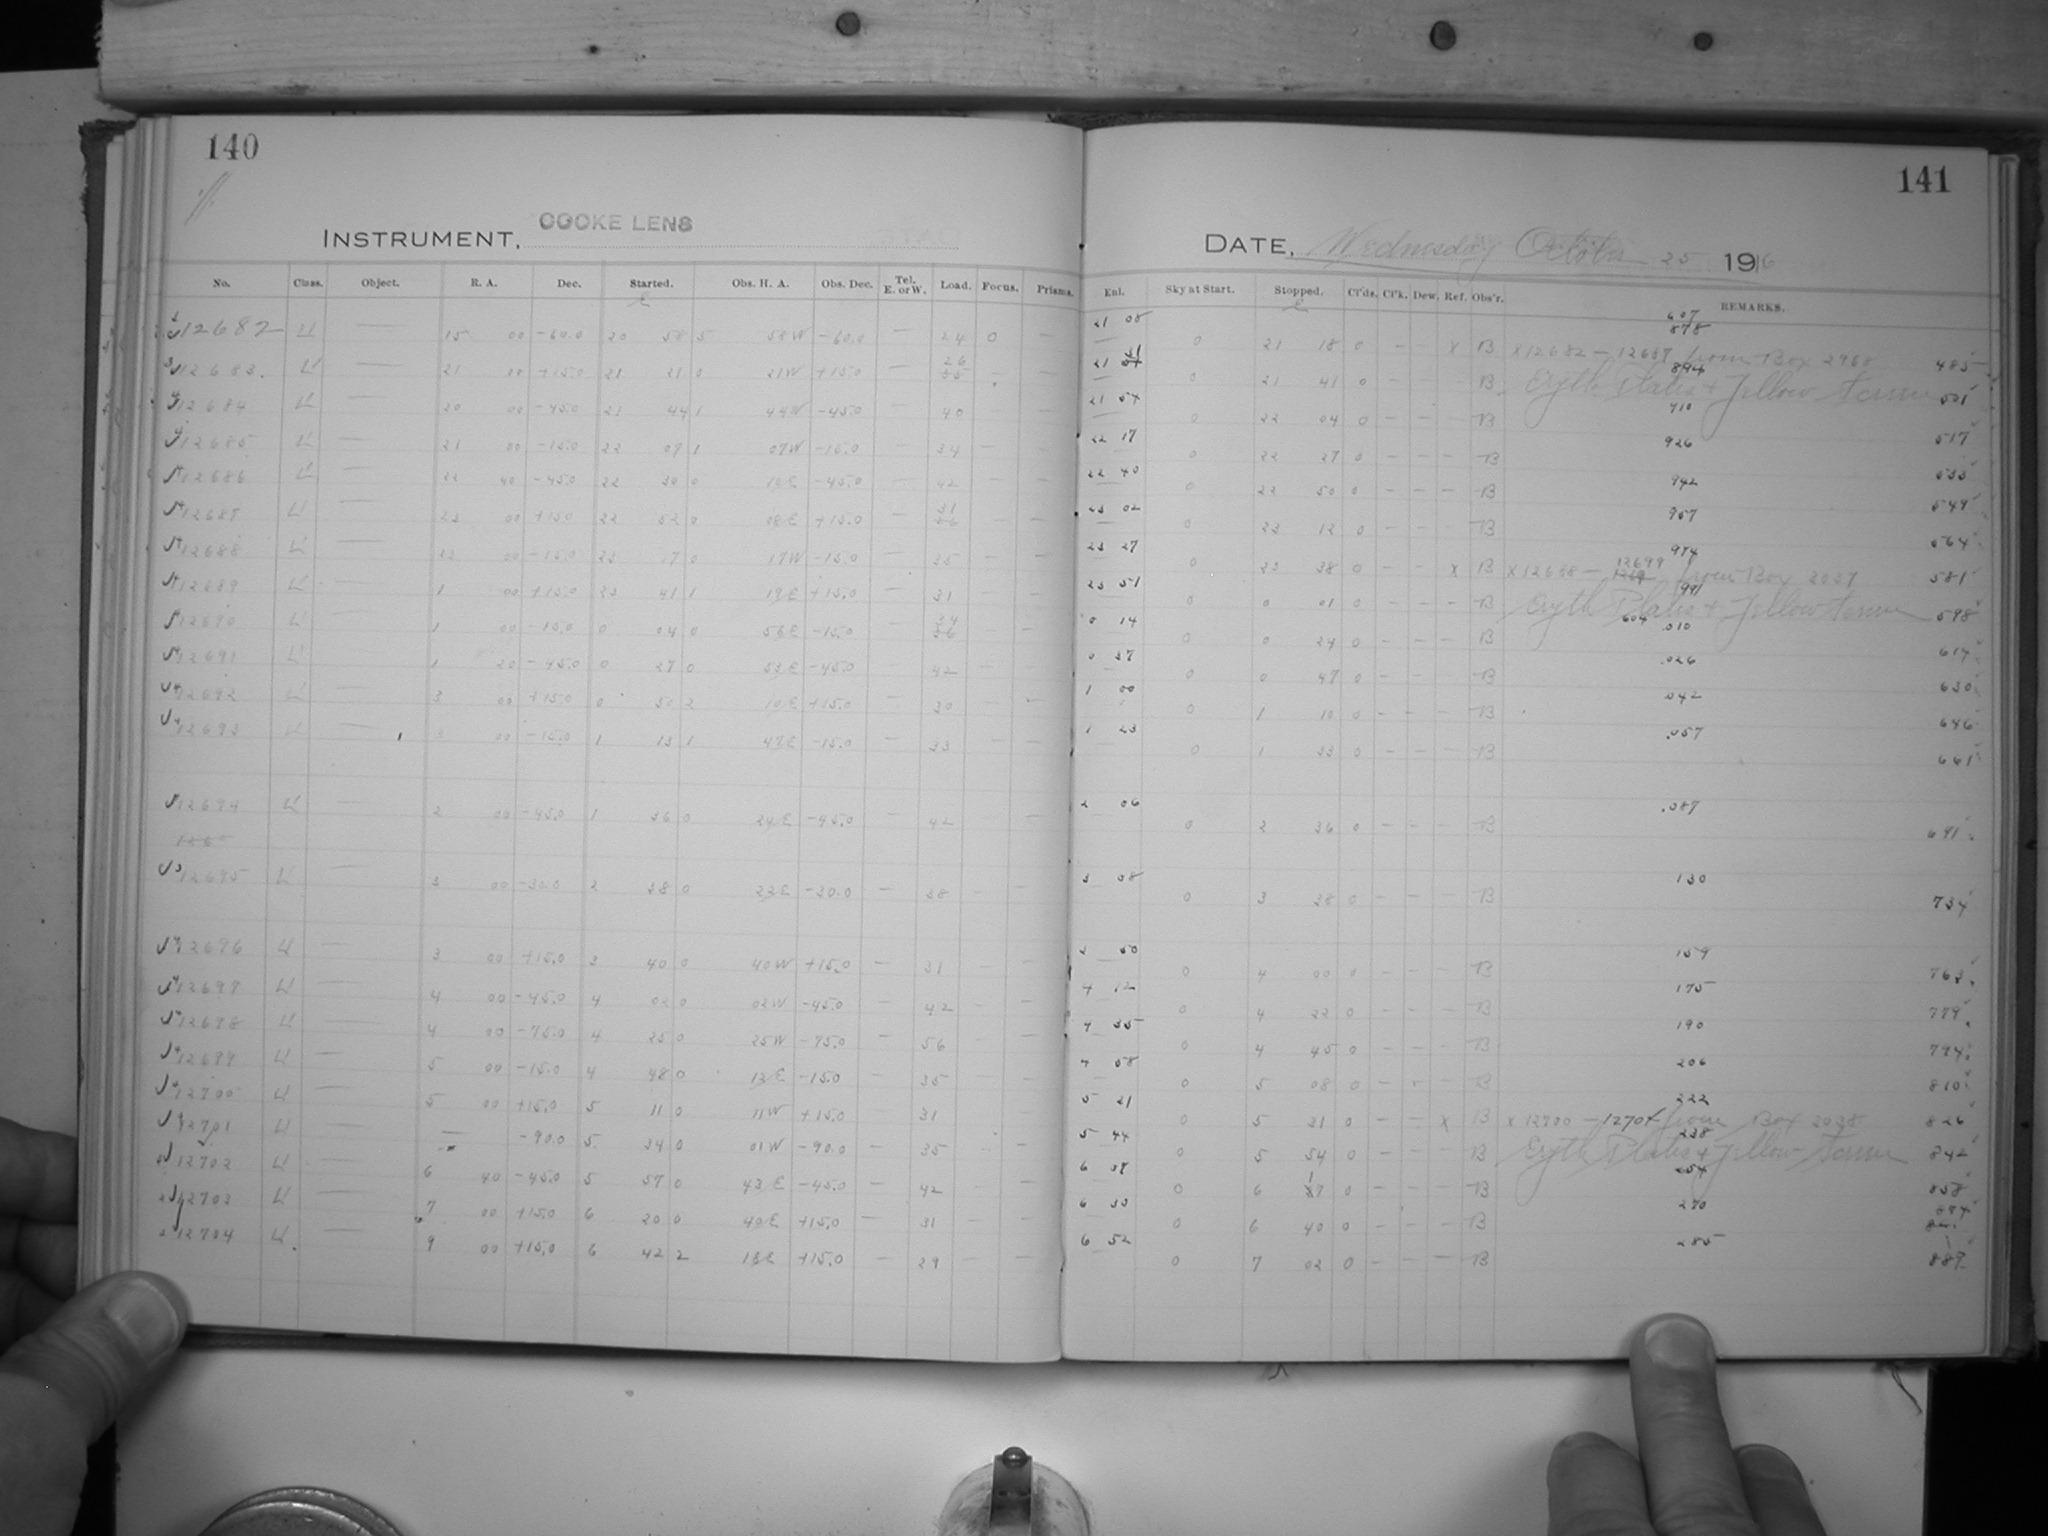 140
INSTRUMENT, COOKE LENS
No. Class. Object. R. A. Dec. Started. Obs. H. A. Obs. Dec. Tel. E. or W. Load. Focus. Prisms.
E
12682 15 00 -60.0 20 58 5 58W -60.0 — 24 0 —
12683. 21 00 +15.0 21 21 0 21W +15.0 —
12684 20 00 -45.0 21 44 1 44W -45.0 — 40
12685 21 00 -15.0 22 07 1 07W -15.0 34 —
12686 22 40 -45.0 22 30 0 10E -45.0 — 42 — —
12687 23 00 +15.0 22 52 0 08E +15.0 —
12688 23 00 -15.0 23 17 0 17W -15.0 — 35 — —
12689 1 00 +15.0 23 41 1 19E +15.0 — 31 — —
12690 1 00 -15.0 0 04 0 56E -15.0 —
12691 1 20 -45.0 0 27 0 53E -45.0 — 42 — —
12692 3 00 +15.0 0 50 2 10E +15.0 — 30 — —
12693 3 00 -15.0 1 13 1 47E -15.0 — 33 — —
12694 2 00 -45.0 1 36 0 24E -45.0 — 42 —
12695 3 00 -30.0 2 38 0 22E -30.0 — 38 — —
12696 3 00 +15.0 3 40 0 40W +15.0 — 31 — —
12697 4 00 -45.0 4 02 0 02W -45.0 — 42 — —
12698 4 00 -75.0 4 25 0 25W -75.0 — 56 — —
12699 5 00 -15.0 4 48 0 12E -15.0 — 35 — —
12700 5 00 +15.0 5 11 0 11W +15.0 — 31 — —
12701 — -90.0 5 34 0 01W -90.0 — 35 — —
12702 6 40 -45.0 5 57 0 43E -45.0 — 42 — —
12703 7 00 +15.0 6 20 0 40E +15.0 — 31 — —
12704 9 00 +15.0 6 42 2 18E +15.0 — 29 — —
141
DATE, Wednesday October 25 1916
Enl. Sky at Start. Stopped. Cl'ds. Cl'k. Dew. Ref. Obs'r. REMARKS.
E
607
21 08 0 21 18 0 — — X B 878 X12682 — 12687 from Box 2968 485
21 31 0 21 41 0 — — — B 894 Eryth Plates + Yellow 501
21 54 0 22 04 0 — — — B 910 517
22 17 0 22 27 0 — — — B 926 533
22 40 0 22 50 0 — — — B 942 549
23 02 0 23 12 0 — — — B 957 564
23 27 0 23 38 0 — — X B 974 X12688 — 12699 from Box 2037 581
23 51 0 0 01 0 — — — B 991 Eryth Plates + Yellow 598
0 14 0 0 24 0 — — — B 604 .010 614
0 37 0 0 47 0 — — — B .026 630
1 00 0 1 10 0 — — — B .042 646
1 23 0 1 33 0 — — — B .057 661
2 06 0 2 36 0 — — — B .087 691
3 08 0 3 38 0 — — — B 130 734
3 50 0 4 00 0 — — — B 159 763
4 12 0 4 22 0 — — — B 175 779
4 35 0 4 45 0 — — — B 190 794
4 58 0 5 08 0 — — — B 206 810
5 21 0 5 31 0 — — X B 222 X12700 — 12704 from Box 2038 826
5 44 0 5 54 0 — — — B 238 Eryth Plates + Yellow 842
6 0 6 17 0 — — — B 254 858
6 30 0 6 40 0 — — — B 270 874
6 52 0 7 02 0 — — — B 285 889